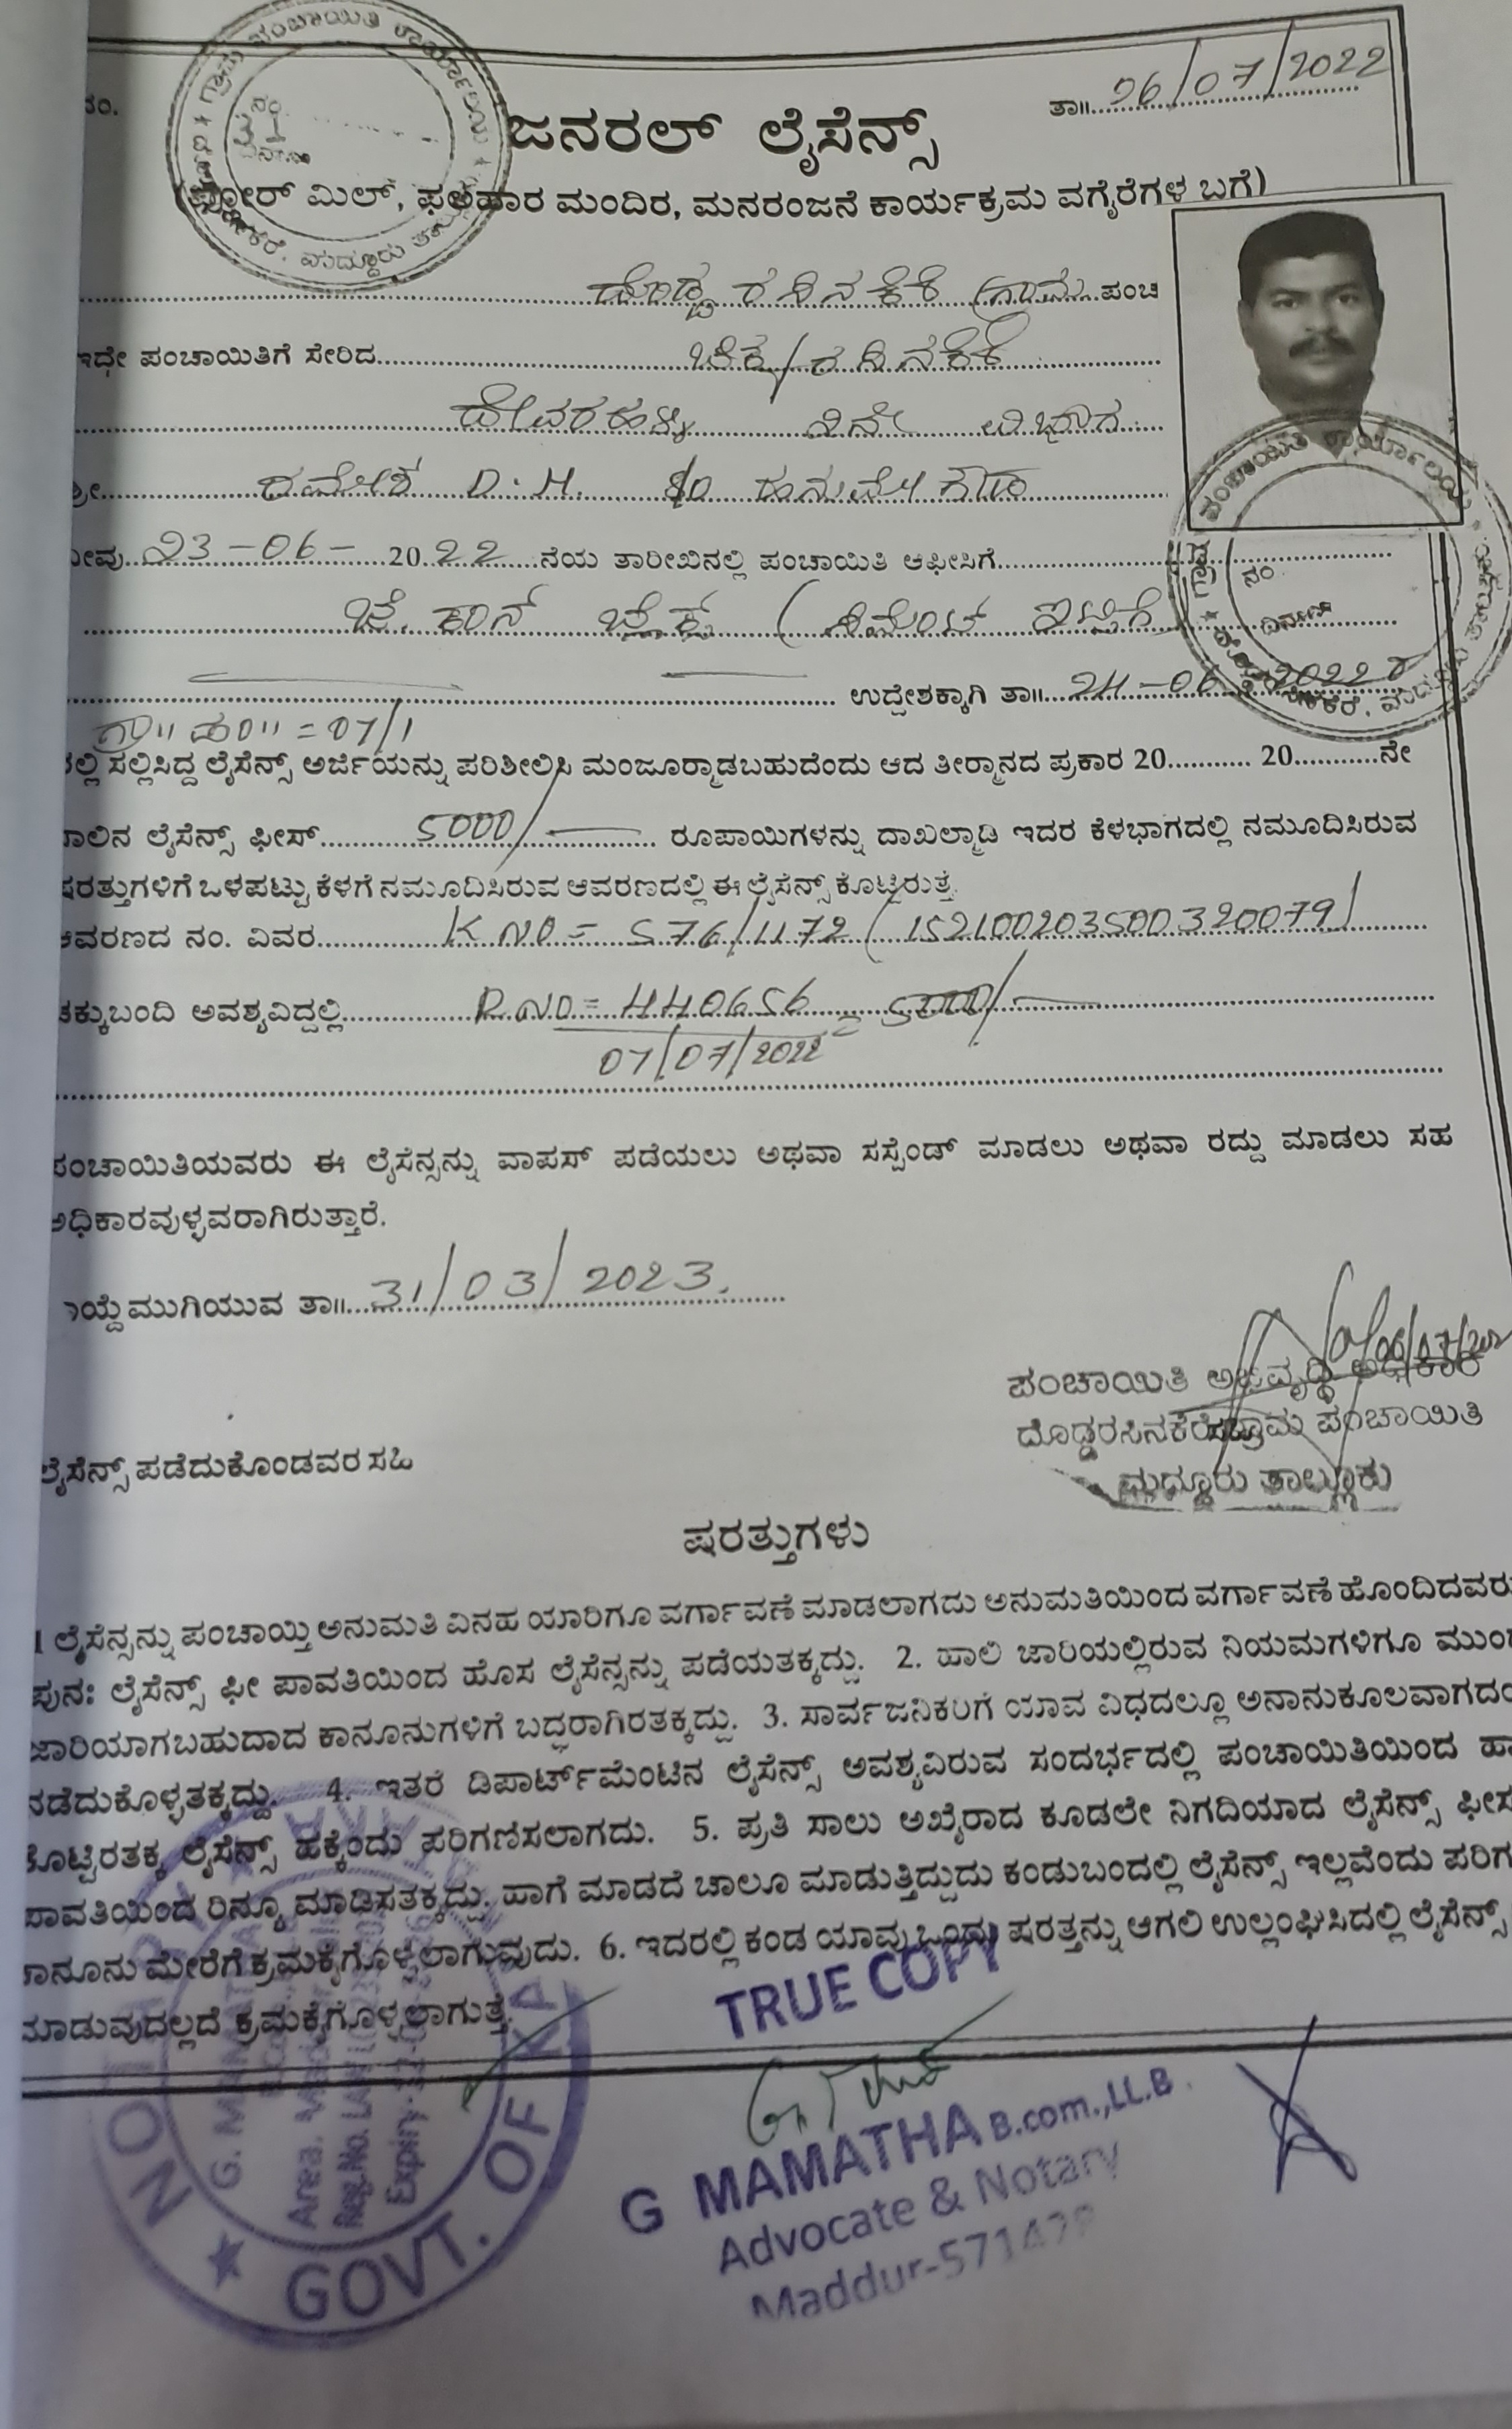 ನಂ.
ತಾ॥ 06/07/2022
ಜನರಲ್ ಲೈಸೆನ್ಸ್
(ಫ್ಲೋರ್ ಮಿಲ್, ಫಲಹಾರ ಮಂದಿರ, ಮನರಂಜನೆ ಕಾರ್ಯಕ್ರಮ ವಗೈರೆಗಳ ಬಗೆ)
ದೊಡ್ಡರಸಿನಕೆರೆ ಗ್ರಾಮ ಪಂಚ
ಇದೇ ಪಂಚಾಯಿತಿಗೆ ಸೇರಿದ ಚಿಕ್ಕರಸಿನಕೆರೆ
ದೇವರಹಳ್ಳಿ ವಿಭಾಗ
ಶ್ರೀ ರಮೇಶ D.H. S/o ಹನುಮೇಗೌಡ
ನೀವು 23-06- 2022 ನೆಯ ತಾರೀಖಿನಲ್ಲಿ ಪಂಚಾಯಿತಿ ಆಫೀಸಿಗೆ
ಬ್ರಿಕ್ಸ್ (ಸಿಮೆಂಟ್ ಇಟ್ಟಿಗೆ
ಉದ್ದೇಶಕ್ಕಾಗಿ ತಾ॥ 24-06-2022 ರ
= 07/1
ರಲ್ಲಿ ಸಲ್ಲಿಸಿದ್ದ ಲೈಸೆನ್ಸ್ ಅರ್ಜಿಯನ್ನು ಪರಿಶೀಲಿಸಿ ಮಂಜೂರ್‍ಮಾಡಬಹುದೆಂದು ಆದ ತೀರ್‍ಮಾನದ ಪ್ರಕಾರ 20........... 20...........ನೇ
ಸಾಲಿನ ಲೈಸೆನ್ಸ್ ಫೀಸ್ 5000/- ರೂಪಾಯಿಗಳನ್ನು ದಾಖಲ್ಮಾಡಿ ಇದರ ಕೆಳಭಾಗದಲ್ಲಿ ನಮೂದಿಸಿರುವ
ಷರತ್ತುಗಳಿಗೆ ಒಳಪಟ್ಟು ಕೆಳಗೆ ನಮೂದಿಸಿರುವ ಆವರಣದಲ್ಲಿ ಈ ಲೈಸೆನ್ಸ್ ಕೊಟ್ಟಿರುತ್ತೆ.
ಆವರಣದ ನಂ. ವಿವರ K NO = 576/1172 (152100203500320079)
ಚಕ್ಕುಬಂದಿ ಅವಶ್ಯವಿದ್ದಲ್ಲಿ R.NO = 440656 = 5000/-
07/07/2022
ಪಂಚಾಯಿತಿಯವರು ಈ ಲೈಸೆನ್ಸನ್ನು ವಾಪಸ್ ಪಡೆಯಲು ಅಥವಾ ಸಸ್ಪೆಂಡ್ ಮಾಡಲು ಅಥವಾ ರದ್ದು ಮಾಡಲು ಸಹ
ಅಧಿಕಾರವುಳ್ಳವರಾಗಿರುತ್ತಾರೆ.
ವಾಯ್ದೆ ಮುಗಿಯುವ ತಾ॥ 31/03/2023.
ಪಂಚಾಯಿತಿ ಅಭಿವೃದ್ಧಿ ಅಧಿಕಾರಿ
ದೊಡ್ಡರಸಿನಕೆರೆ ಗ್ರಾಮ ಪಂಚಾಯಿತಿ
ಮದ್ದೂರು ತಾಲ್ಲೂಕು
ಲೈಸೆನ್ಸ್ ಪಡೆದುಕೊಂಡವರ ಸಹಿ
ಷರತ್ತುಗಳು
1 ಲೈಸೆನ್ಸನ್ನು ಪಂಚಾಯ್ತಿ ಅನುಮತಿ ವಿನಹ ಯಾರಿಗೂ ವರ್ಗಾವಣೆ ಮಾಡಲಾಗದು ಅನುಮತಿಯಿಂದ ವರ್ಗಾವಣೆ ಹೊಂದಿದವರು
ಪುನಃ ಲೈಸೆನ್ಸ್ ಫೀ ಪಾವತಿಯಿಂದ ಹೊಸ ಲೈಸೆನ್ಸನ್ನು ಪಡೆಯತಕ್ಕದ್ದು. 2. ಹಾಲಿ ಜಾರಿಯಲ್ಲಿರುವ ನಿಯಮಗಳಿಗೂ ಮುಂದೆ
ಜಾರಿಯಾಗಬಹುದಾದ ಕಾನೂನುಗಳಿಗೆ ಬದ್ಧರಾಗಿರತಕ್ಕದ್ದು. 3. ಸಾರ್ವಜನಿಕರಿಗೆ ಯಾವ ವಿಧದಲ್ಲೂ ಅನಾನುಕೂಲವಾಗದಂ
ನಡೆದುಕೊಳ್ಳತಕ್ಕದ್ದು. 4. ಇತರೆ ಡಿಪಾರ್ಟ್‌ಮೆಂಟಿನ ಲೈಸೆನ್ಸ್ ಅವಶ್ಯವಿರುವ ಸಂದರ್ಭದಲ್ಲಿ ಪಂಚಾಯಿತಿಯಿಂದ ಹಾ
ಕೊಟ್ಟಿರತಕ್ಕ ಲೈಸೆನ್ಸ್ ಹಕ್ಕೆಂದು ಪರಿಗಣಿಸಲಾಗದು. 5. ಪ್ರತಿ ಸಾಲು ಅಖೈರಾದ ಕೂಡಲೇ ನಿಗದಿಯಾದ ಲೈಸೆನ್ಸ್ ಫೀಸ
ಪಾವತಿಯಿಂದ ರಿನ್ಯೂ ಮಾಡಿಸತಕ್ಕದ್ದು. ಹಾಗೆ ಮಾಡದೆ ಚಾಲೂ ಮಾಡುತ್ತಿದ್ದುದು ಕಂಡುಬಂದಲ್ಲಿ ಲೈಸೆನ್ಸ್ ಇಲ್ಲವೆಂದು ಪರಿಗ
ಕಾನೂನು ಮೇರೆಗೆ ಕ್ರಮಕೈಗೊಳ್ಳಲಾಗುವುದು. 6. ಇದರಲ್ಲಿ ಕಂಡ ಯಾವುದೊಂದು ಷರತ್ತನ್ನು ಆಗಲಿ ಉಲ್ಲಂಘಿಸಿದಲ್ಲಿ ಲೈಸೆನ್ಸ್
ಮಾಡುವುದಲ್ಲದೆ ಕ್ರಮಕೈಗೊಳ್ಳಲಾಗುತ್ತೆ.
TRUE COPY
G MAMATHA B.com.,LL.B
Advocate & Notary
Maddur-571428
GOVT. OF KA